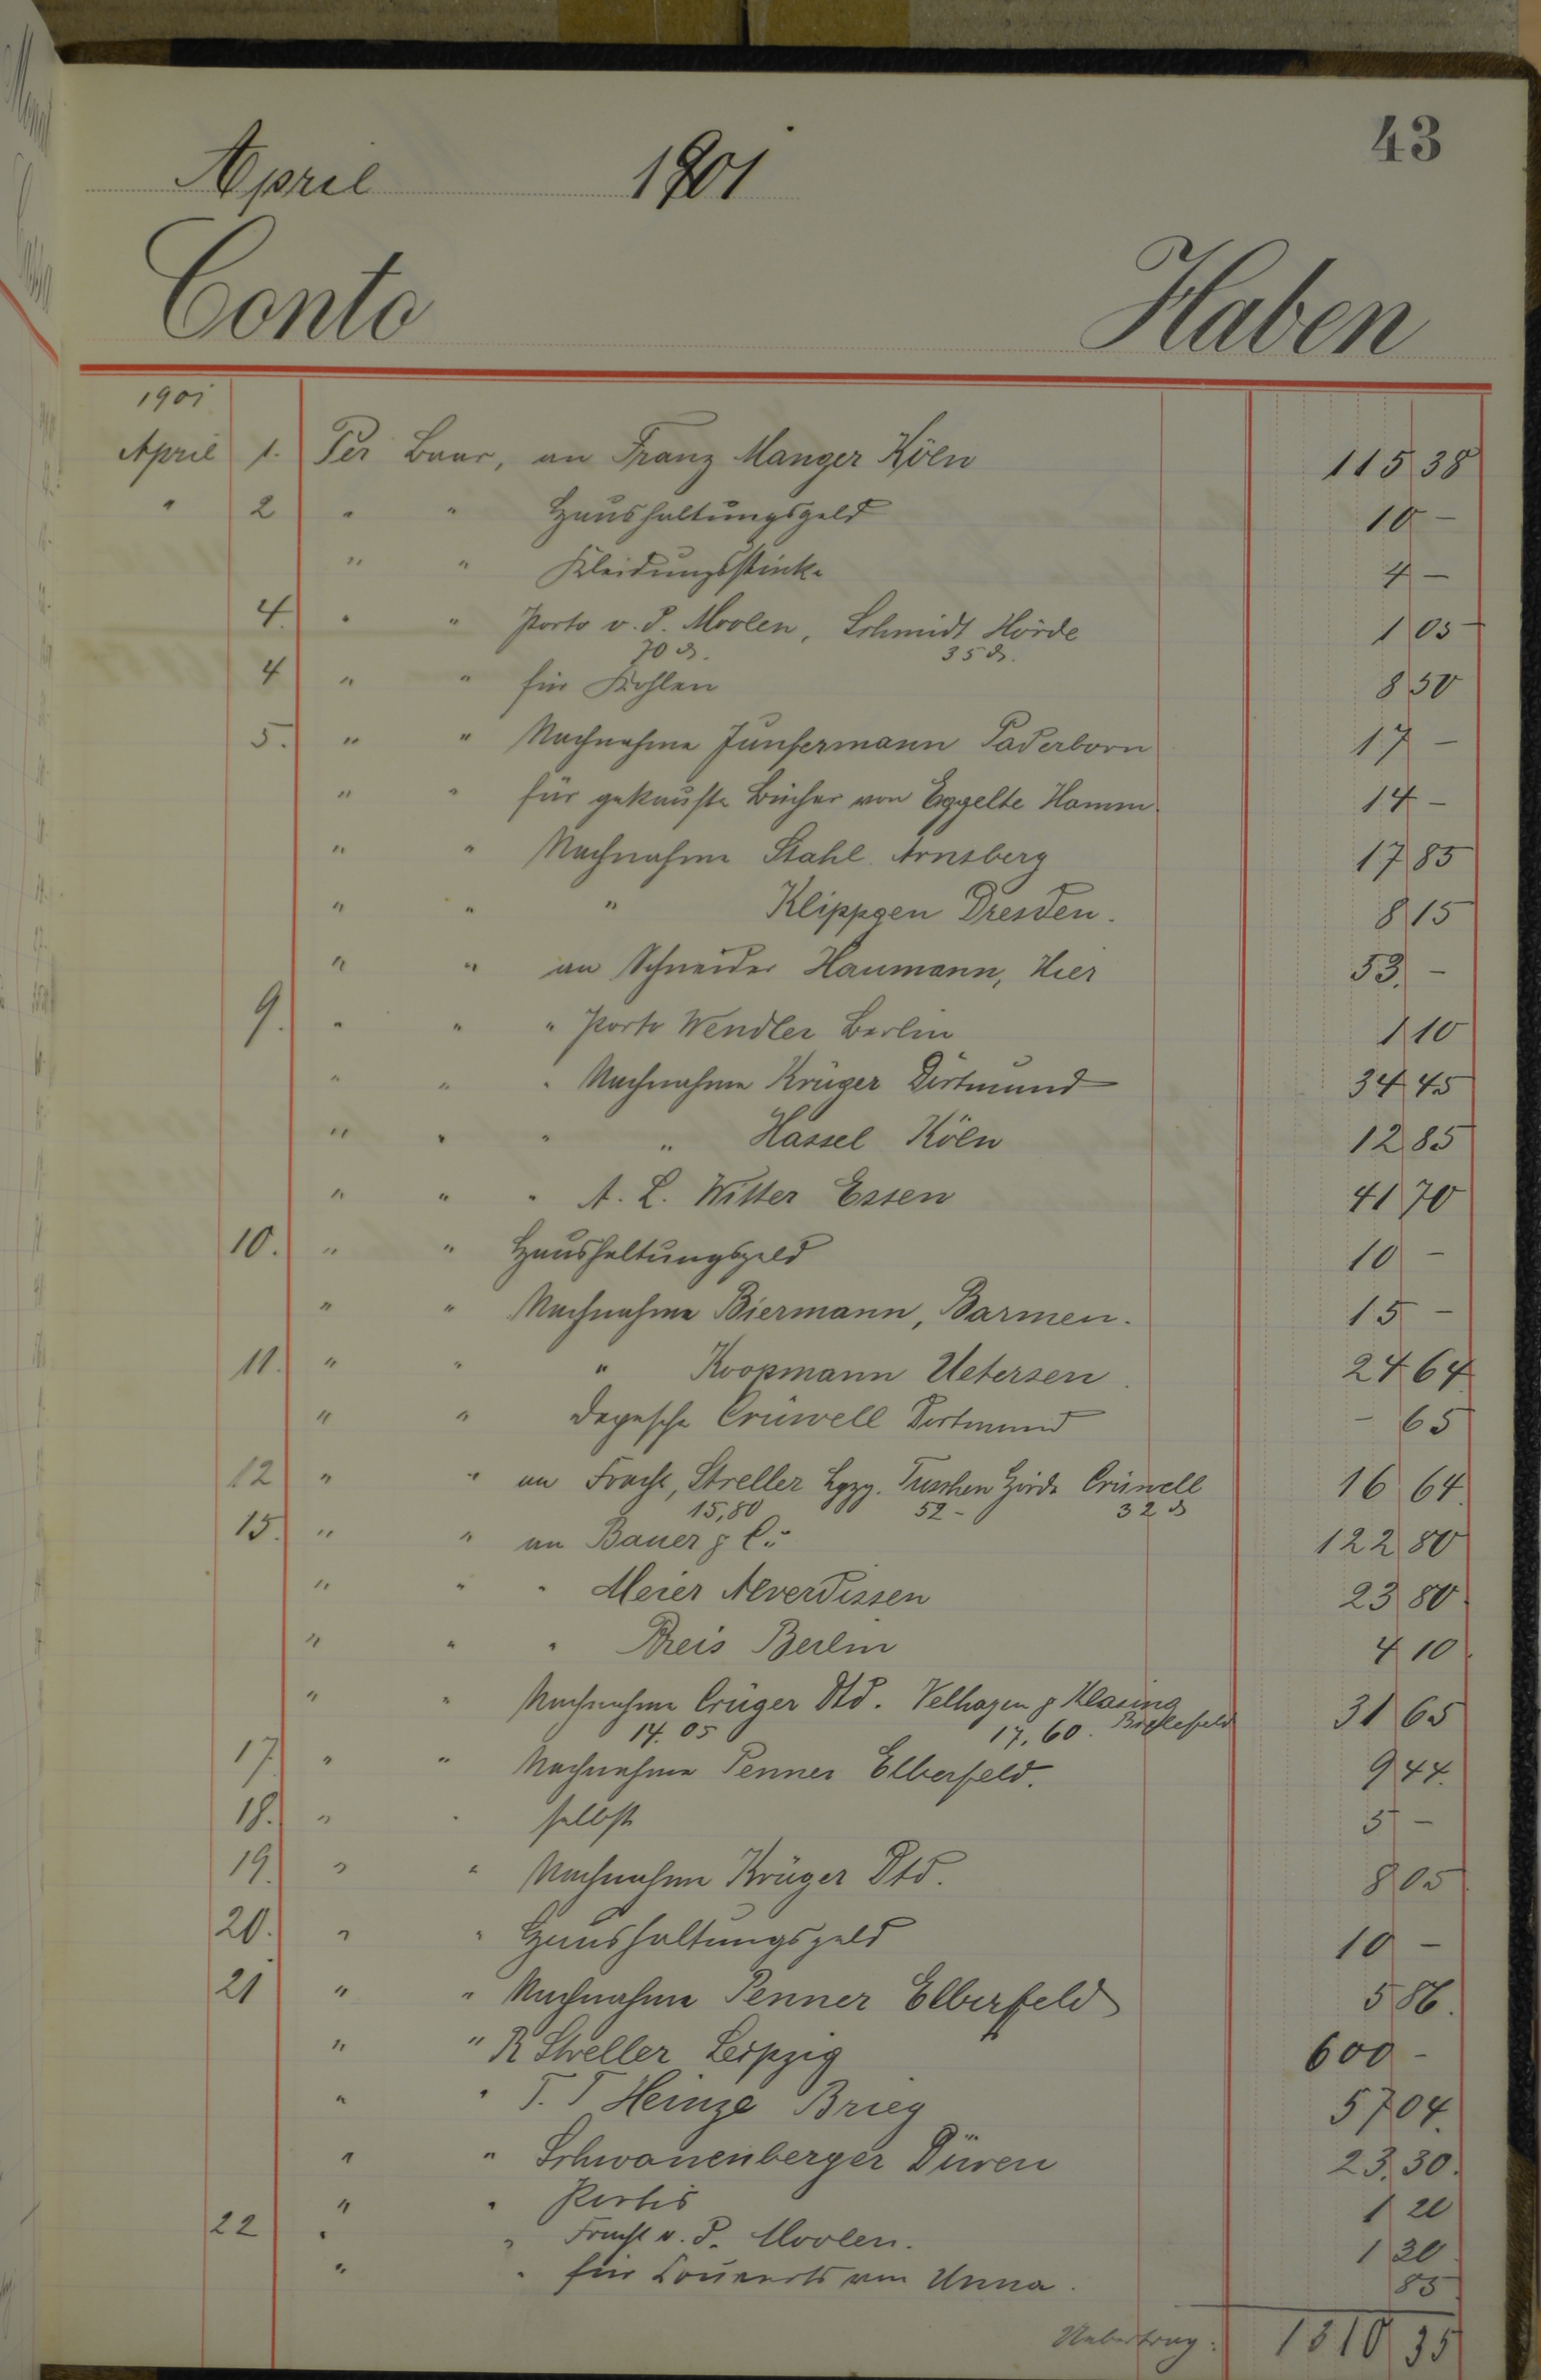 43
April 1901
Conto Haben
1901
April 1. Per Baar, an Franz Manger Köln 115 38
" 2 " " Haushaltungsgeld 10 -
" " Kleidungsstücke 4 -
4. " " Porto v. d. Moolen, Schmidt Hörde 1 05
70 ₰. 35 ₰.
4 " " für Kohlen 8 50
5. " " Nachnahme Junfermann Paderborn 17 -
" " für gekaufte Bücher von Eggelte Hamm. 14 -
" " Nachnahme Stahl Arnsberg 17 85
" " " Klippgen Dresden. 8 15
" " an Schneider Haumann, Hier 53. -
9. " " " Porto Wendler Berlin 1 10
" " " Nachnahme Krüger Dortmund 34 45
" " " " Hassel Köln 12 85
" " " A. L. Witter Essen 41 70
10. " " Haushaltungsgeld 10 -
" " Nachnahme Biermann, Barmen. 15 -
11. " " " Koopmann Uetersen. 24 64
" " Depesche Crüwell Dortmund - 65
12 " " an Fracht, Streller Lpzg. Tuschen Hörde Crüwell 16 64
15,80 52 - 32 ₰
15. " " an Bauer & C. 122 80
" " " Meier Alverdissen 23 80
" " " Preis Berlin 4 10
" " Nachnahme Crüger Dtd. Velhagen & Klasing 31 65
14.05 17,60. Bielefeld
17. " " Nachnahme Penner Elberfeld. 9 44.
18. " " selbst 5 -
19. " " Nachnahme Krüger Dtd. 8 05
20. " " Haushaltungsgeld 10 -
21 " " Nachnahme Penner Elberfeld 5 86.
" " R Streller Leipzig 600 -
" " T. T Heinze Brieg 57 04.
" " Schwanenberger Düren 23.30.
" " Portis 1 20
22 " " Fracht v. d. Moolen. 1 30
" " für Couverts von Unna. 85
Uebertrag: 1310 35